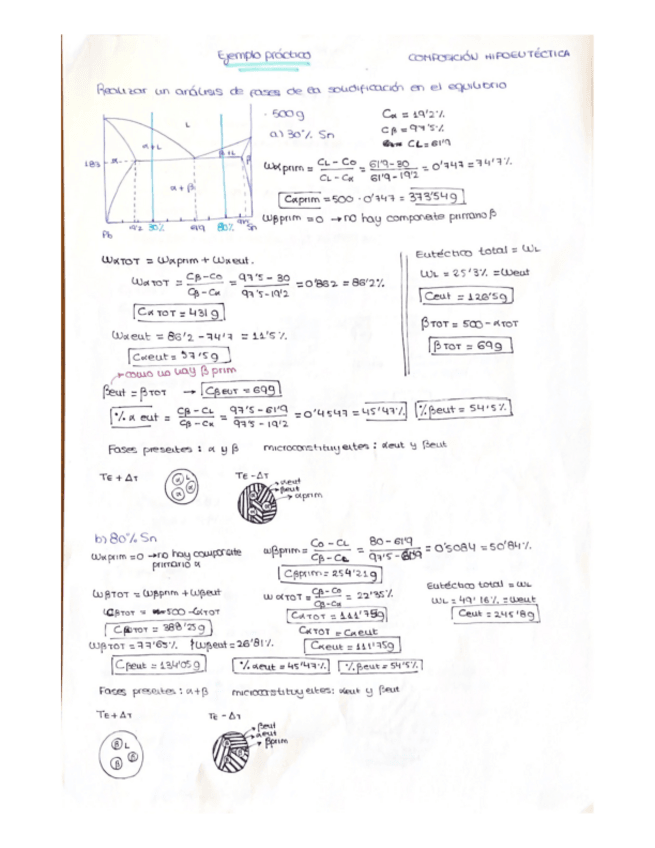 Ejemplo práctico
COMPOSICIÓN HIPOEUTÉCTICA
Realizar un análisis de fases de la solidificación en el equilibrio
L
α+L
β+L
183
α
α+β
Pb
19'2 30% 61'9 80% Sn
· 500g
a) 30% Sn
Cα = 19'2%
Cβ = 97'5%
CL = 61'9
Wαprim = (CL - C0)/(CL - Cα) = (61'9-30)/(61'9-19'2) = 0'747 = 74'7%
Cαprim = 500 · 0'747 = 373'54g
Wβprim = 0 → no hay componente primario β
WαTOT = Wαprim + Wαeut.
WαTOT = (Cβ-C0)/(Cβ-Cα) = (97'5-30)/(97'5-19'2) = 0'862 = 86'2%
CαTOT = 431g
Wαeut = 86'2 - 74'7 = 11'5%
Cαeut = 57'5g
→ como no hay β prim
βeut = βTOT → CβEUT = 69g
%α eut = (Cβ-CL)/(Cβ-Cα) = (97'5-61'9)/(97'5-19'2) = 0'4547 = 45'47%
%βeut = 54'5%
Eutéctico total = WL
WL = 25'3% = Weut
Ceut = 126'5g
βTOT = 500 - αTOT
βTOT = 69g
Fases presentes: α y β microconstituyentes: αeut y βeut
TE + ΔT
L
α
α
α
TE - ΔT
αeut
βeut
αprim
b) 80% Sn
Wαprim = 0 → no hay componente primario α
Wβprim = (C0 - CL)/(Cβ - CL) = (80-61'9)/(97'5-61'9) = 0'5084 = 50'84%
Cβprim = 254'21g
WβTOT = Wβprim + Wβeut
CβTOT = 500 - CαTOT
CβTOT = 388'25g
WβTOT = 77'65% Wβeut = 26'81%
Cβeut = 134'05g
WαTOT = (Cβ-C0)/(Cβ-Cα) = 22'35%
CαTOT = 111'75g
CαTOT = Cαeut
Cαeut = 111'75g
%αeut = 45'47%
%βeut = 54'5%
Eutéctico total = WL
WL = 49'16% = Weut
Ceut = 245'8g
Fases presentes: α+β microconstituyentes: αeut y βeut
TE + ΔT
β L
β
β
TE - ΔT
βeut
αeut
βprim